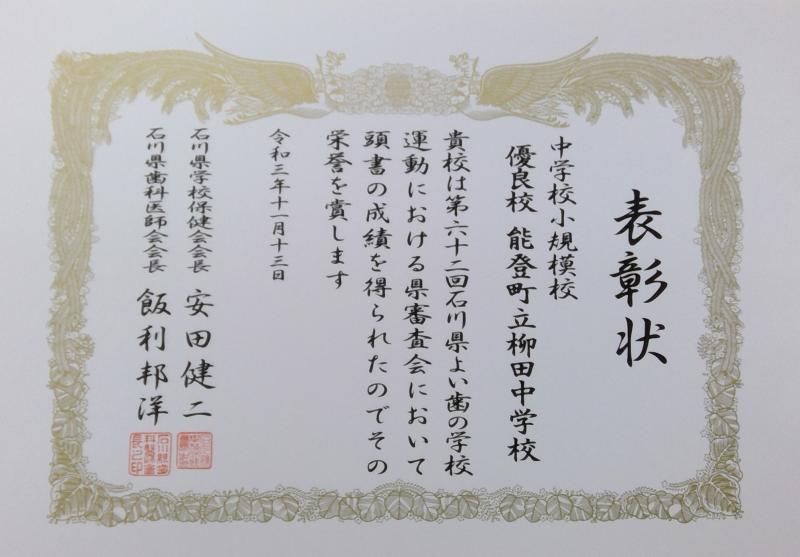 表彰状
中学校小規模校
優良校 能登町立柳田中学校
貴校は第六十二回石川県よい歯の学校
運動における県審査会において
頭書の成績を得られたのでその
栄誉を賞します
令和三年十一月十三日
石川県学校保健会会長 安田健二
石川県歯科医師会会長 飯利邦洋